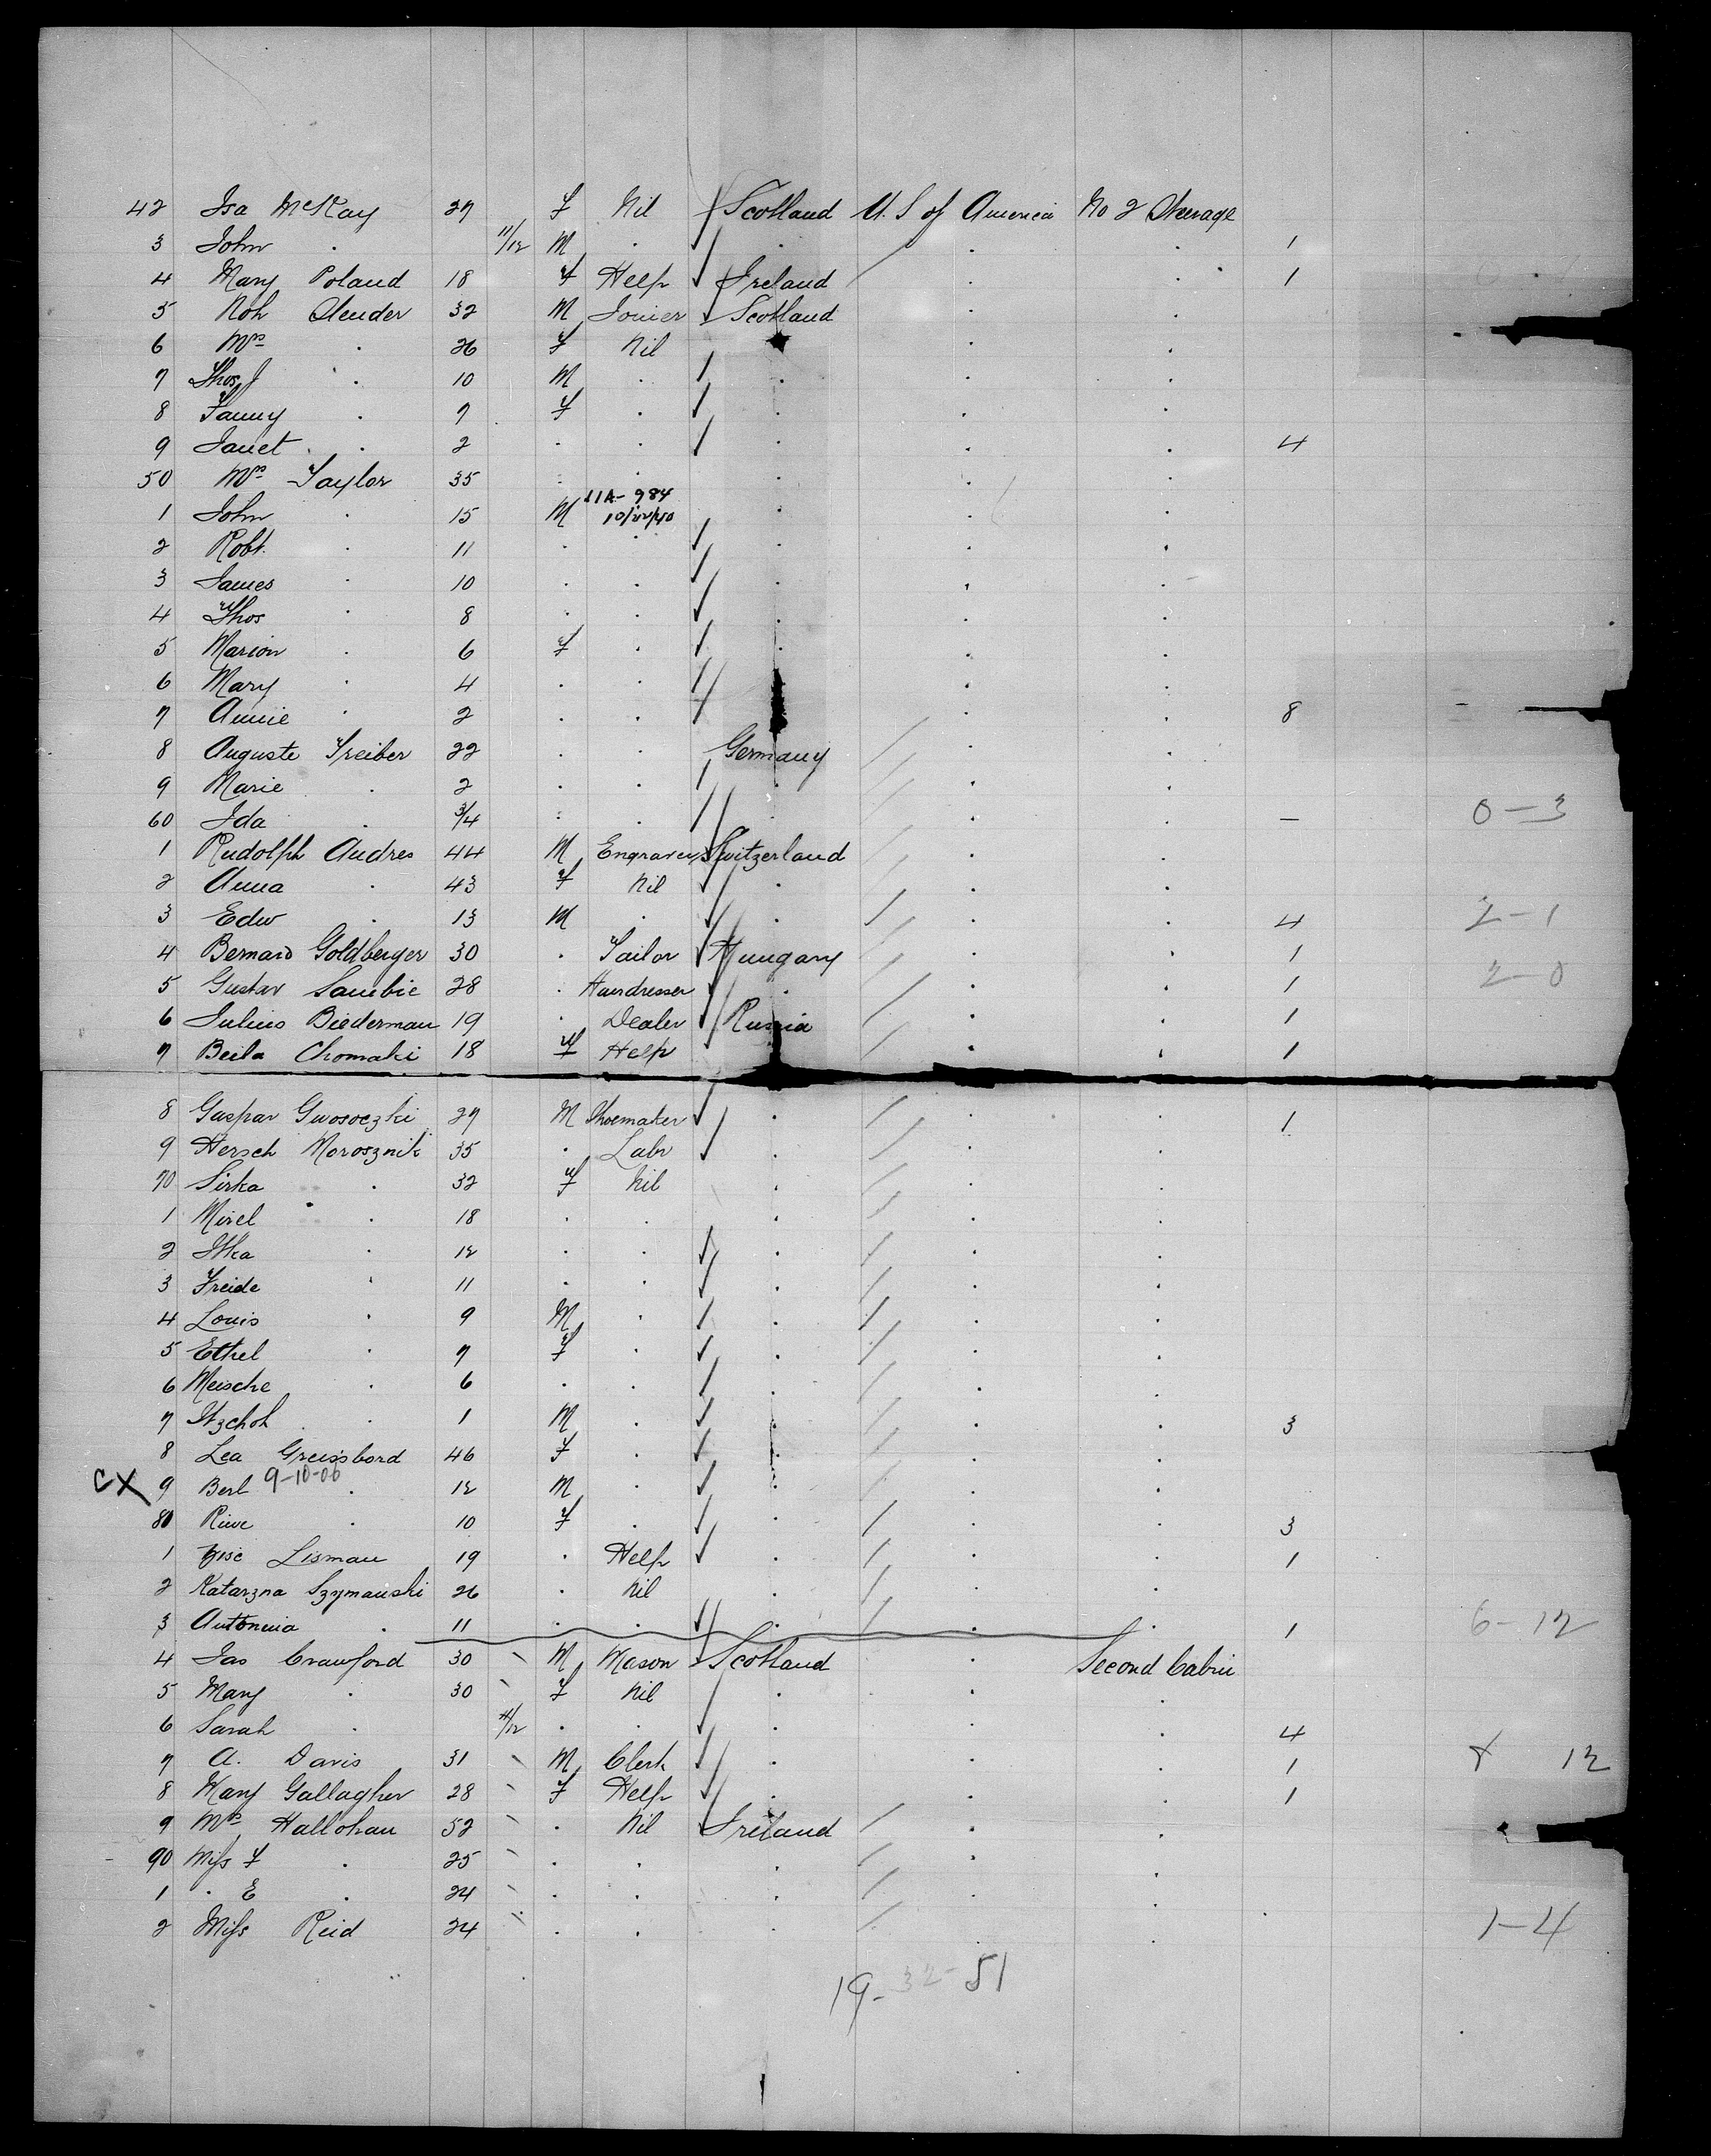 42 Isa McKay 27 F Nil Scotland U. S of America No 2 Steerage
3 John . 11/12 M . . . . 1
4 Mary Poland 18 F Help Ireland . . 1
5 Rob Clender 32 M Joiner Scotland . .
6 Mrs . 26 F Nil . .
7 Thos J . 10 M . . . .
8 Fanny . 7 F . . . .
9 Janet . 2 . . . . . 4
50 Mrs Taylor 35 . . . . .
11A-984
1 John . 15 M 10/22/40 . . .
2 Robt. . 11 . . . . .
3 James . 10 . . . . .
4 Thos . 8 . . . . .
5 Marion . 6 F . . . .
6 Mary . 4 . . . .
7 Annie . 2 . . . . 8
8 Auguste Treiber 22 . . Germany . .
9 Marie . 2 . . . . .
60 Ida . 3/4 . . . . . — 0-3
1 Rudolph Andres 44 M Engraver Switzerland . .
2 Anna . 43 F Nil . . .
3 Edw . 13 M . . . . 4 2-1
4 Bernard Goldberger 30 . Tailor Hungary . . 1
5 Gustav Sambic 28 . Hairdresser . . . 1 2-0
6 Julius Biederman 19 . Dealer Russia . . 1
7 Beila Chomaki 18 F Help . . 1
8 Gaspar Gwosoczki 27 M Shoemaker . . . 1
9 Hersch Morosznik 35 . Labr . . .
70 Sirka . 32 F Nil . . .
1 Mirel . 18 . . . . .
2 Itka . 12 . . . . .
3 Freide . 11 . . . . .
4 Louis . 9 M . . . .
5 Ethel . 7 F . . . .
6 Meische . 6 . . . . .
7 Itzchok . 1 M . . . . 3
8 Lea Greissbord 46 F . . . .
CX 9 Berl 9-10-06 . 12 M . . . .
80 Riwe . 10 F . . . . 3
1 Lisman 19 . Help . . . 1
2 Katarzna Szymanski 26 . Nil . . .
3 Antonina . 11 . . . . . 1 6-12
4 Jas Crawford 30 M Mason Scotland . Second Cabin
5 Mary . 30 F Nil . . .
6 Sarah . 11/12 . . . . . 4
7 A. Davis 31 M Clerk . . . 1 12
8 Mary Gallagher 28 F Help . . . 1
9 Mrs Hallohan 52 . Nil Ireland . .
90 Miss F . 25 . . . . .
1 . E . 24 . . . . .
2 Miss Reid 24 . . . . . 1-4
19-32-51